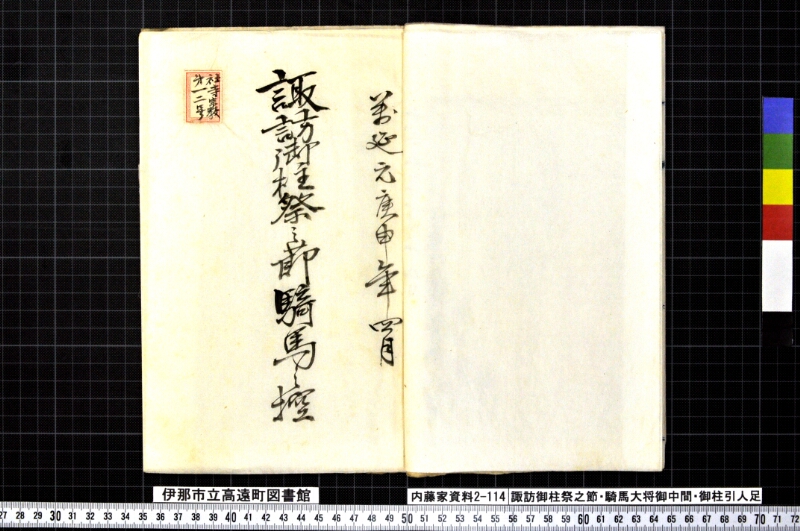 萬延元庚申年四月
諏訪御柱祭之節騎馬之控
社寺宗教
第一二号
伊那市立高遠町図書館
内藤家資料2-114
諏訪御柱祭之節・騎馬大将御中間・御柱引人足
27 28 29 30 31 32 33 34 35 36 37 38 39 40 41 42 43 44 45 46 47 48 49 50 51 52 53 54 55 56 57 58 59 60 61 62 63 64 65 66 67 68 69 70 71 72